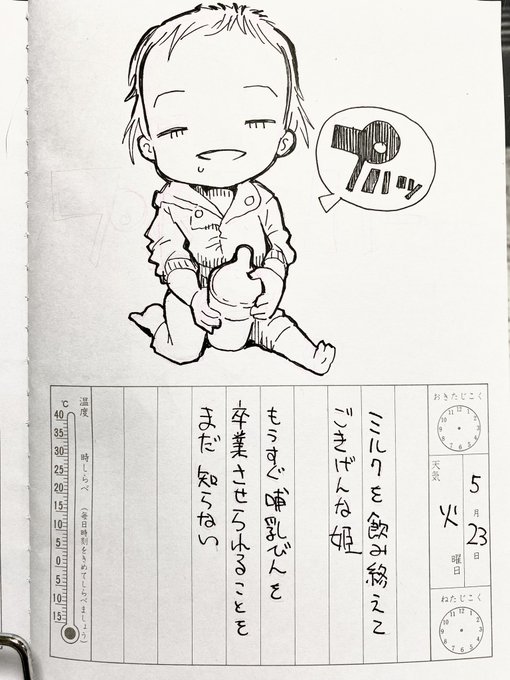 プハッ
おきたじこく
天気
5月23日
火曜日
ねたじこく
ミルクを飲み終えて
ごきげんな姫
もうすぐ哺乳びんを
卒業させられることを
まだ知らない
温度 時しらべ (毎日時刻をきめてしらべましょう)
℃
40
35
30
25
20
15
10
5
0
5
10
15